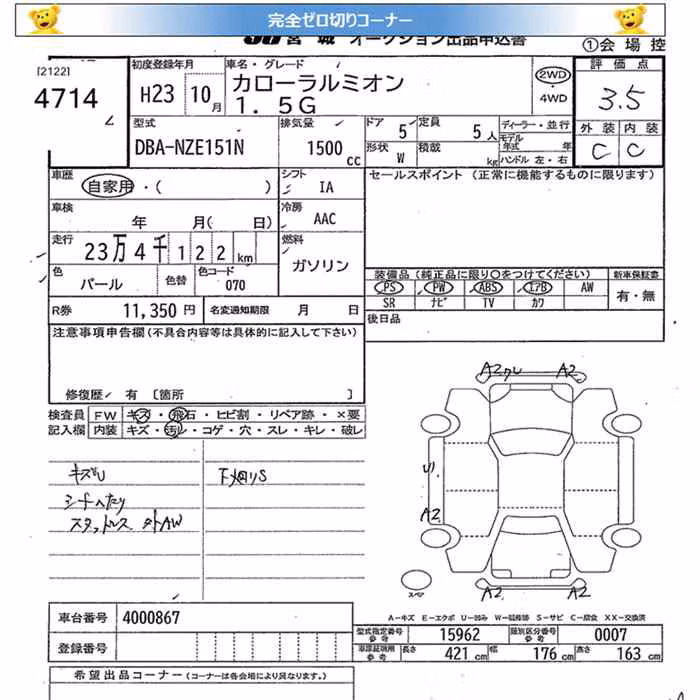 完全ゼロ切りコーナー
JU 宮城 オークション出品申込書
①会場控
[2122]
4714
初度登録年月
H23 10月
車名・グレード
カローラルミオン
1.5G
2WD
4WD
評価点
3.5
外装 内装
C C
型式
DBA-NZE151N
排気量
1500 cc
ドア 5
定員 5人
形状 W
積載 kg
ディーラー・並行
モデル年式 年
ハンドル 左・右
車歴
自家用・( )
シフト
IA
セールスポイント (正常に機能するものに限ります)
車検
年 月( 日)
冷房
AAC
走行
23万4千122km
燃料
ガソリン
色
パール
色替
色コード
070
装備品(純正品に限り○をつけてください)
新車保証書
PS PW ABS エアB AW
SR ナビ TV カワ
有・無
R券
11,350円
名変通知期限 月 日
後日品
注意事項申告欄(不具合内容等は具体的に記入して下さい)
修復歴 有 [箇所 ]
検査員
記入欄
FW キズ・飛石・ヒビ割・リペア跡・×要
内装 キズ・汚レ・コゲ・穴・スレ・キレ・破レ
キズU
シートへたり
スタットレス 外AW
下廻りS
A2 A2
A2
A2 A2
スペア
A-キズ E-エクボ U-凹み W-補修跡 S-サビ C-腐食 XX-交換済
車台番号
4000867
登録番号
型式指定番号
参考
15962
類別区分番号
参考
0007
車庫証明用
参考
長さ 421 cm 幅 176 cm 高さ 163 cm
希望出品コーナー(コーナーは各会場により異なります。)